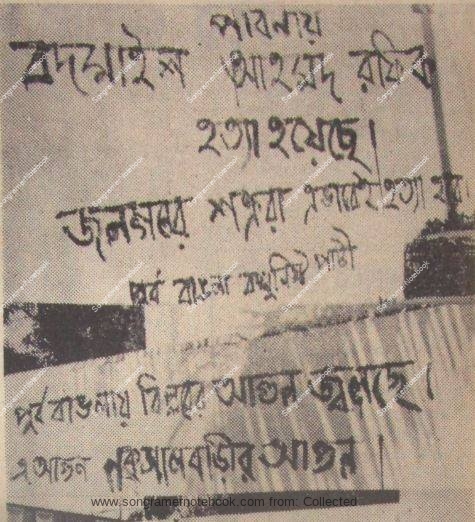 পাবনায়
বদমাইশ আহমেদ রফিক
হত্যা হয়েছে।
জনগনের শত্রুরা এভাবেই হত্যা হবে
পূর্ব বাংলা কম্যুনিস্ট পার্টী
পূর্ব বাঙলায় বিপ্লবের আগুন জ্বলছে।
এ আগুন নকসালবাড়ীর আগুন।
www.songramernotebook.com from: Collected